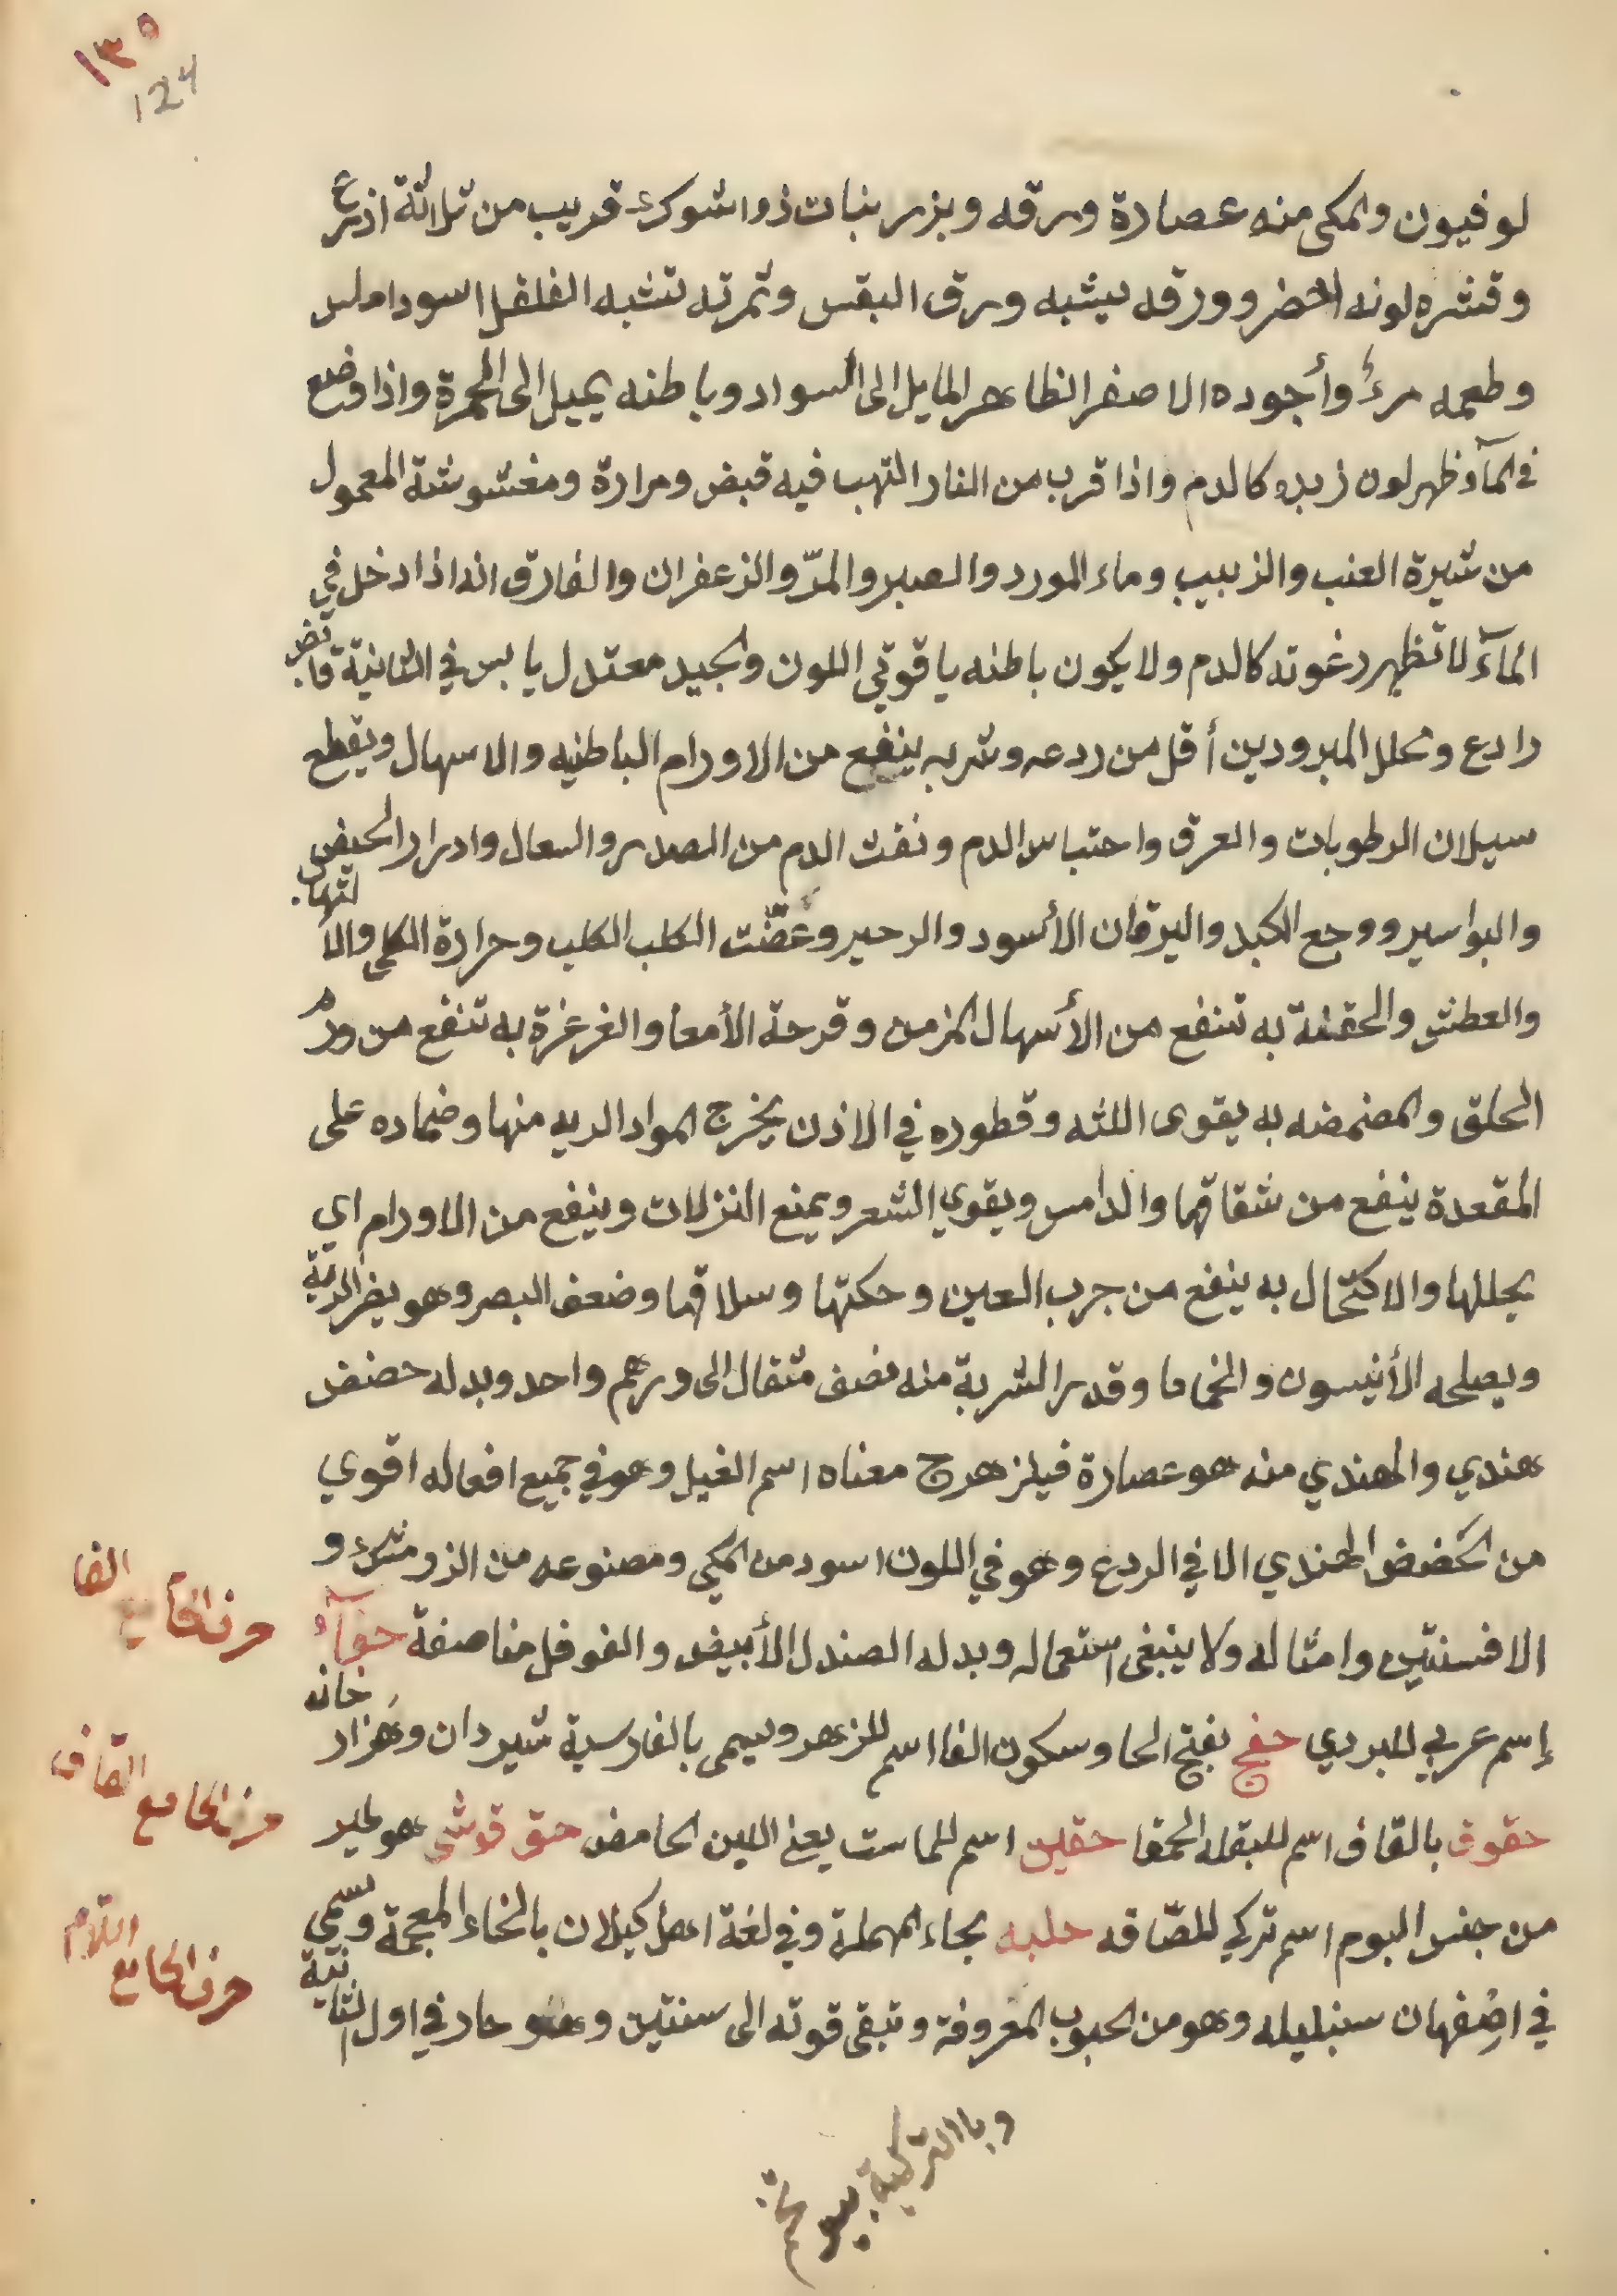 ١٣٥
124
لوفيون والمكى منه عصارة ورقه وبزر بنبات ذو اشوكة قريب من ثلاثة اذرع
وقشره لونه اخضر وورقه يشبه ورق البقس وثمرته تشبه الفلفل اسود املس
وطعمه مرءٌ وأجوده الاصفر الظاهر المايل الى السواد وباطنه يميل الى الحمرة واذا وضع
في المآء ظهر لون زبده كالدم واذا قرب من النار التهب فيه قبض ومرارة ومغشوشة المعمول
من شيرة العنب والزبيب وماء المورد والصبر والمرّ والزعفران والفارق انه اذا ادخل في
المآء لا تظهر رغوته كالدم ولا يكون باطنه ياقوتي اللون والجيد معتدل يابس في الثانية قابض
رادع وتحلل المبرودين أقل من ردعه وشربه ينفع من الاورام الباطنيه والاسهال ويقطع
سيلان الرطوبات والعرق واحتباس الدم ونفث الدم من الصدر والسعال وادرار الحيض
والبواسير ووجع الكبد واليرقان الأسود والزحير وعضّت الكلب الكلب وحرارة الكلى والألتهاب
والعطش والحقنة به تنفع من الأسهال المزمن وقرحة الأمعا والغرغرة به تنفع من ورم
الحلق والمضمضه به يقوى اللثه وقطوره في الاذن يخرج المواد الرديه منها وضماده على
المقعدة ينفع من شقاقها والدامس ويقوي الشعر ويمنع النزلات وينفع من الاورام اي
يحللها والاكتحال به ينفع من جرب العين وحكتها وسلاقها وضعف البصر وهو يضر الرية
ويصلحه الأنيسون والخاما وقدر الشربة منه نصف مثقال الى درهم واحد وبدله حضض
هندي والهندي منه هو عصارة فيلزهرج معناه اسم الفيل وهو في جميع افعاله اقوي
من الحضض الهندي الا في الردع وهو في اللون اسود من المكي ومصنوعه من الزرمشك و
الافسنتين وامثاله ولا ينبغى استعماله وبدله الصندل الأبيض والفوفل مناصفة حفآء
إسم عربي للبردي حفج بفتح الحا وسكون الفا اسم للزهر ويسمى بالفارسية شيردان وهزار خانه
حقوق بالقاف اسم للبقله الحمقا حقين اسم للماست يعني اللبن الحامض حق قوشى هو طير
من جنس البوم اسم تركي للصّاقه حلبه بحاء المهملة وفي لغة اهل كيلان بالخاء المعجمة وتسمى
في اصفهان سنبليله وهو من الحبوب المعروفة وتبقى قوته الى سنتين وهو حار في اول الثانية
حرف الحا مع الفا
حرف الحا مع القاف
حرف الحا مع اللام
وبالتركية بيو تخم